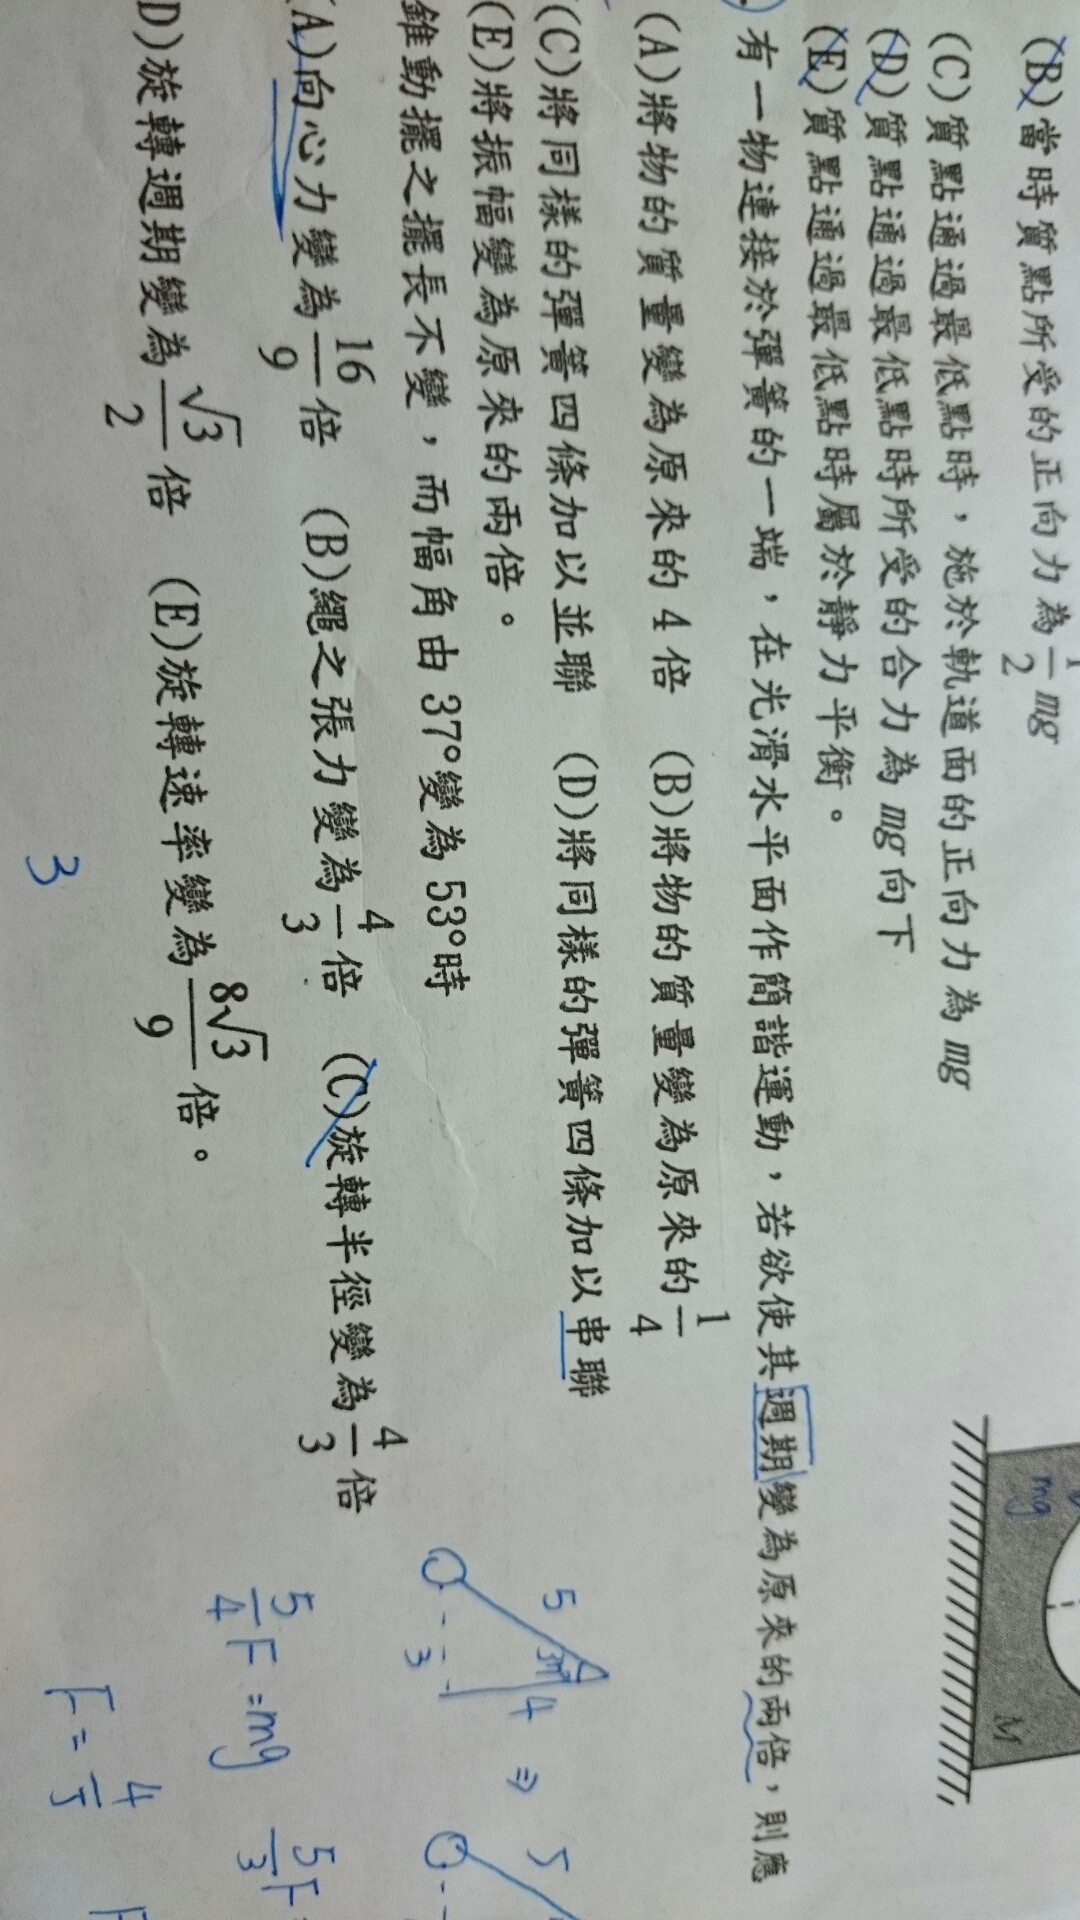 (B)當時質點所受的正向力為 1/2 mg
(C)質點通過最低點時,施於軌道面的正向力為 mg
(D)質點通過最低點時所受的合力為 mg 向下
(E)質點通過最低點時屬於靜力平衡。
有一物連接於彈簧的一端,在光滑水平面作簡諧運動,若欲使其週期變為原來的兩倍,則應
(A)將物的質量變為原來的 4 倍 (B)將物的質量變為原來的 1/4
(C)將同樣的彈簧四條加以並聯 (D)將同樣的彈簧四條加以串聯
(E)將振幅變為原來的兩倍。
錐動擺之擺長不變,而幅角由 37°變為 53°時
(A)向心力變為 16/9 倍 (B)繩之張力變為 4/3 倍 (C)旋轉半徑變為 4/3 倍
D)旋轉週期變為 √3/2 倍 (E)旋轉速率變為 8√3/9 倍。
mg
M
5 37° 4 ⇒ 5
3
5/4 F = mg 5/3 F =
F = 4/5 F
3